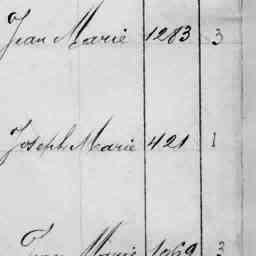 Jean Marie 1283 3
Joseph Marie 421 1
Jean Marie 1069 3